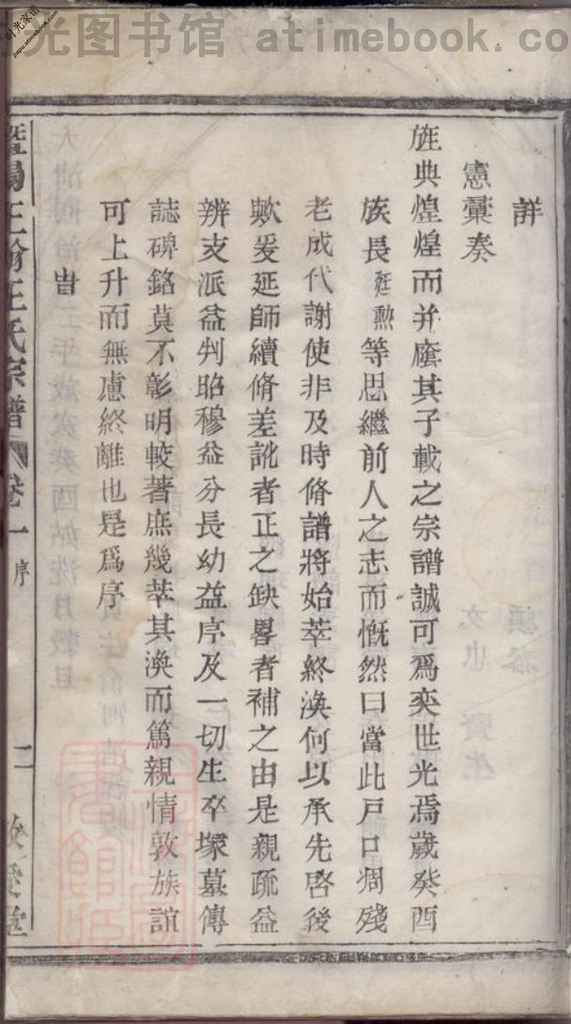 光图书馆 atimebook.co
詳
憲彙奏
旌典煌煌而并廕其子載之宗譜誠可爲奕世光焉歲癸酉
族長廷勲等思繼前人之志而慨然曰當此戸口凋殘
老成代謝使非及時脩譜將始萃終渙何以承先啓後
歟爰延師續脩差訛者正之缺畧者補之由是親疏益
辨支派益判昭穆益分長幼益序及一切生卒塚墓傳
誌碑銘莫不彰明較著庶幾萃其渙而篤親情敦族誼
可上升而無慮終離也是爲序
旹
暨陽 王氏宗譜 卷一 序 二